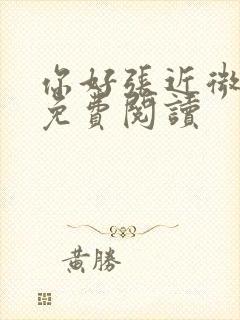 你好張近微
免費閱讀
黃勝